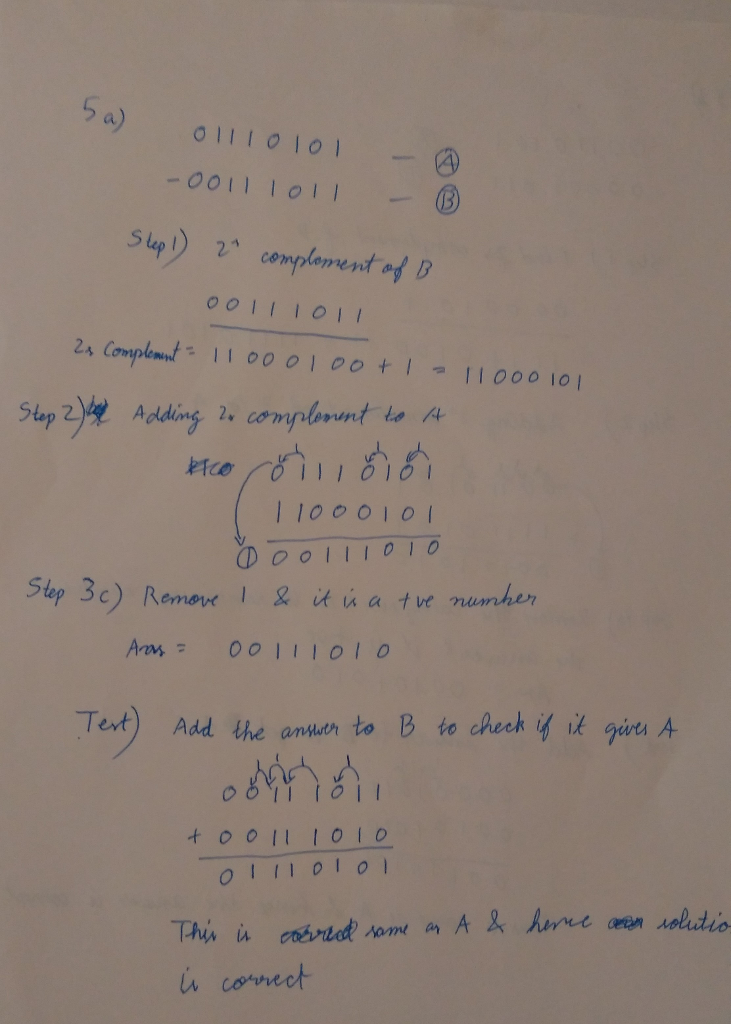 5a)
01110101 - Ⓐ
-00111011 - Ⓑ
Step 1) 2^s complement of B
00111011
2s Complement = 11000100 + 1 = 11000101
Step 2) Adding 2s complement to A
01110101
11000101
① 00111010
Step 3c) Remove 1 & it is a +ve number
Ans = 00111010
Test) Add the answer to B to check if it gives A
00111011
+ 00111010
01110101
This is same as A & hence solutio
is correct